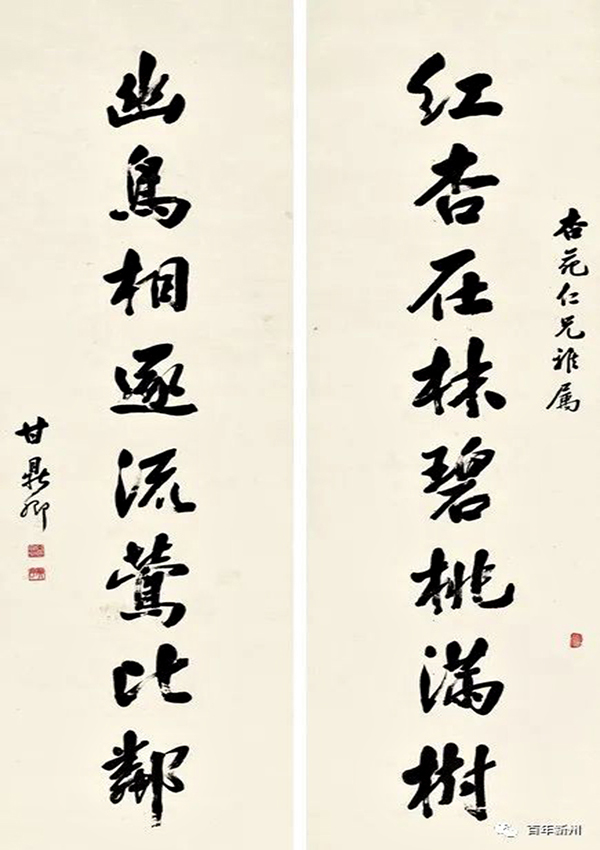 杏苑仁兄雅属
红杏在林碧桃满树
幽鸟相逐流莺比邻
甘鼎卿
百年新州